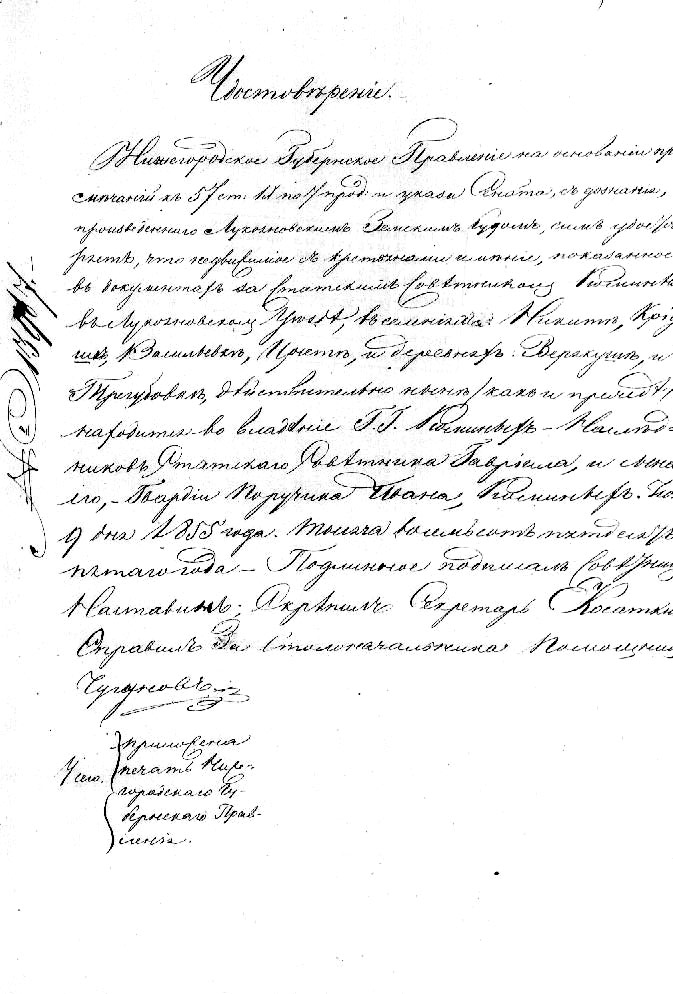 Удостовѣреніе.
Нижегородское Губернское Правленіе на основаніи при
мѣчаній къ 57 ст. IX по прод. и указа Сената, съ дознанія,
произведеннаго Лукояновскимъ Земскимъ Судомъ, симъ удосто
ряетъ, что недвижимое съ крестьянами имѣніе, показанное
въ документахъ за Статскимъ Совѣтникомъ
въ Лукояновскомъ Уѣздѣ, въ селеніяхъ: Никитѣ,
Васильевкѣ, и деревняхъ: Верякушѣ, и
Трегубовкѣ, дѣйствительно нынѣ /какъ и прежде/,
находится во владѣніе Г.Г. Наслѣд-
никовъ Статскаго Совѣтника Гавріила, и сына
его, Гвардіи Поручика Ивана,
9 дня 1855 года. Тысяча восемьсотъ пятдесятъ
пятаго года – Подлинное подписалъ Совѣтник
Наставинъ; Скрѣпилъ Секретарь Косатки
Справилъ За Столоначальника Помощник
Чугуновъ
приложена
У сего. печать Ниже-
городскаго Гу-
бернскаго Прав-
ленія.